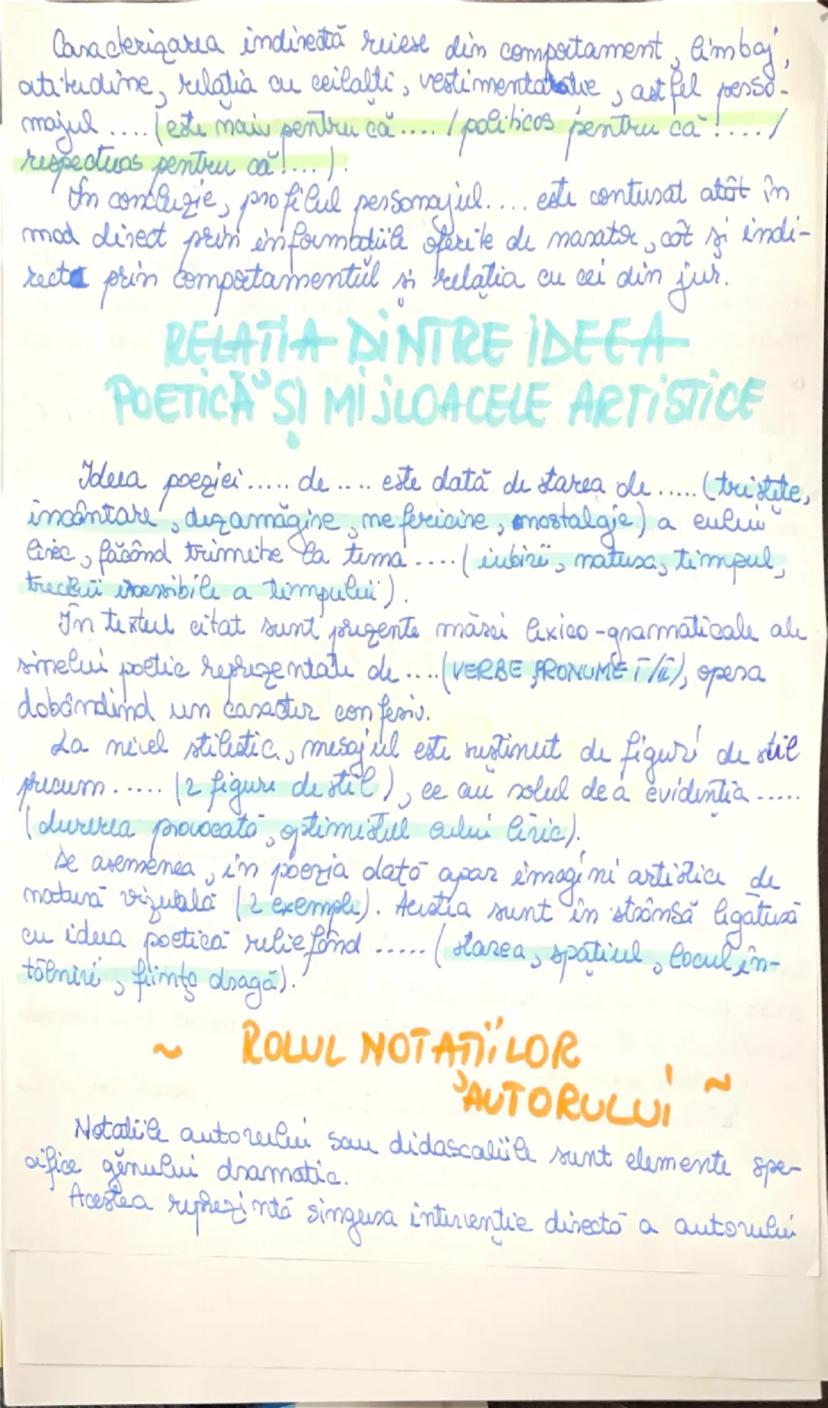 Caracterizarea indirectă reiese din comportament, limbaj,
atitudine, relația cu ceilalți, vestimentatație, astfel perso-
najul .... (este naiv pentru că .... / politicos pentru că !.... /
respectuos pentru că !....).
În concluzie, profilul personajul.... este conturat atât în
mod direct prin informațiile oferite de narator, cât și indi-
rect prin comportamentul și relația cu cei din jur.
RELAȚIA DINTRE IDEEA
POETICĂ ȘI MIJLOACELE ARTISTICE
Ideea poeziei ..... de .... este dată de starea de ..... (tristețe,
încântare, dezamăgire, nefericire, nostalgie) a eului
liric, făcând trimitere la tema .... (iubirii, natura, timpul,
trecerii ireversibile a timpului).
În textul citat sunt prezente mărci lexico-gramaticale ale
sinelui poetic reprezentate de .... (VERBE, PRONUME I/II), opera
dobândind un caracter confesiv.
La nivel stilistic, mesajul este susținut de figuri de stil
precum ..... (2 figuri de stil), ce au rolul de a evidenția .....
(durerea provocată, optimistul eului liric).
De asemenea, în poezia dată apar imagini artistice de
natură vizuală (2 exemple). Acestia sunt în strânsă legătură
cu ideea poetică reliefând ..... (starea, spațiul, locul în-
tâlniri, ființa dragă).
~ ROLUL NOTAȚIILOR
AUTORULUI ~
Notațiile autorului sau didascaliile sunt elemente spe-
cifice genului dramatic.
Acestea reprezintă singura intervenție directă a autorului